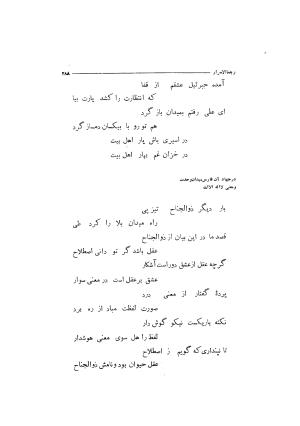 زبدة‌الاسرار ۲۸۵
آمده جبرئیل عشقم از قفا
که انتظارت را کشد یارت بیا
ای علی رفتم بمیدان باز گرد
هم تو رو با بیکسان دمساز گرد
در اسیری باش یار اهل بیت
در خزان غم بهار اهل بیت
در جولان آن فارس میدان وحدت
و معنی لااله الاالله
بار دیگر ذوالجناح تیز پی
راه میدان بلا را کرد طی
قصد ما در این بیان از ذوالجناح
عقل باشد گر تو دانی اصطلاح
گرچه عقل از عشق دور است آشکار
عشق بر عقل است در معنی سوار
پردهٔ گفتار از معنی درد
صورت لفظت مباد از ره برد
نکته باریکست نیکو گوش دار
لفظ را هل سوی معنی هوشدار
تا نپنداری که گویم ز اصطلاح
عقل حیوان بود و نامش ذوالجناح